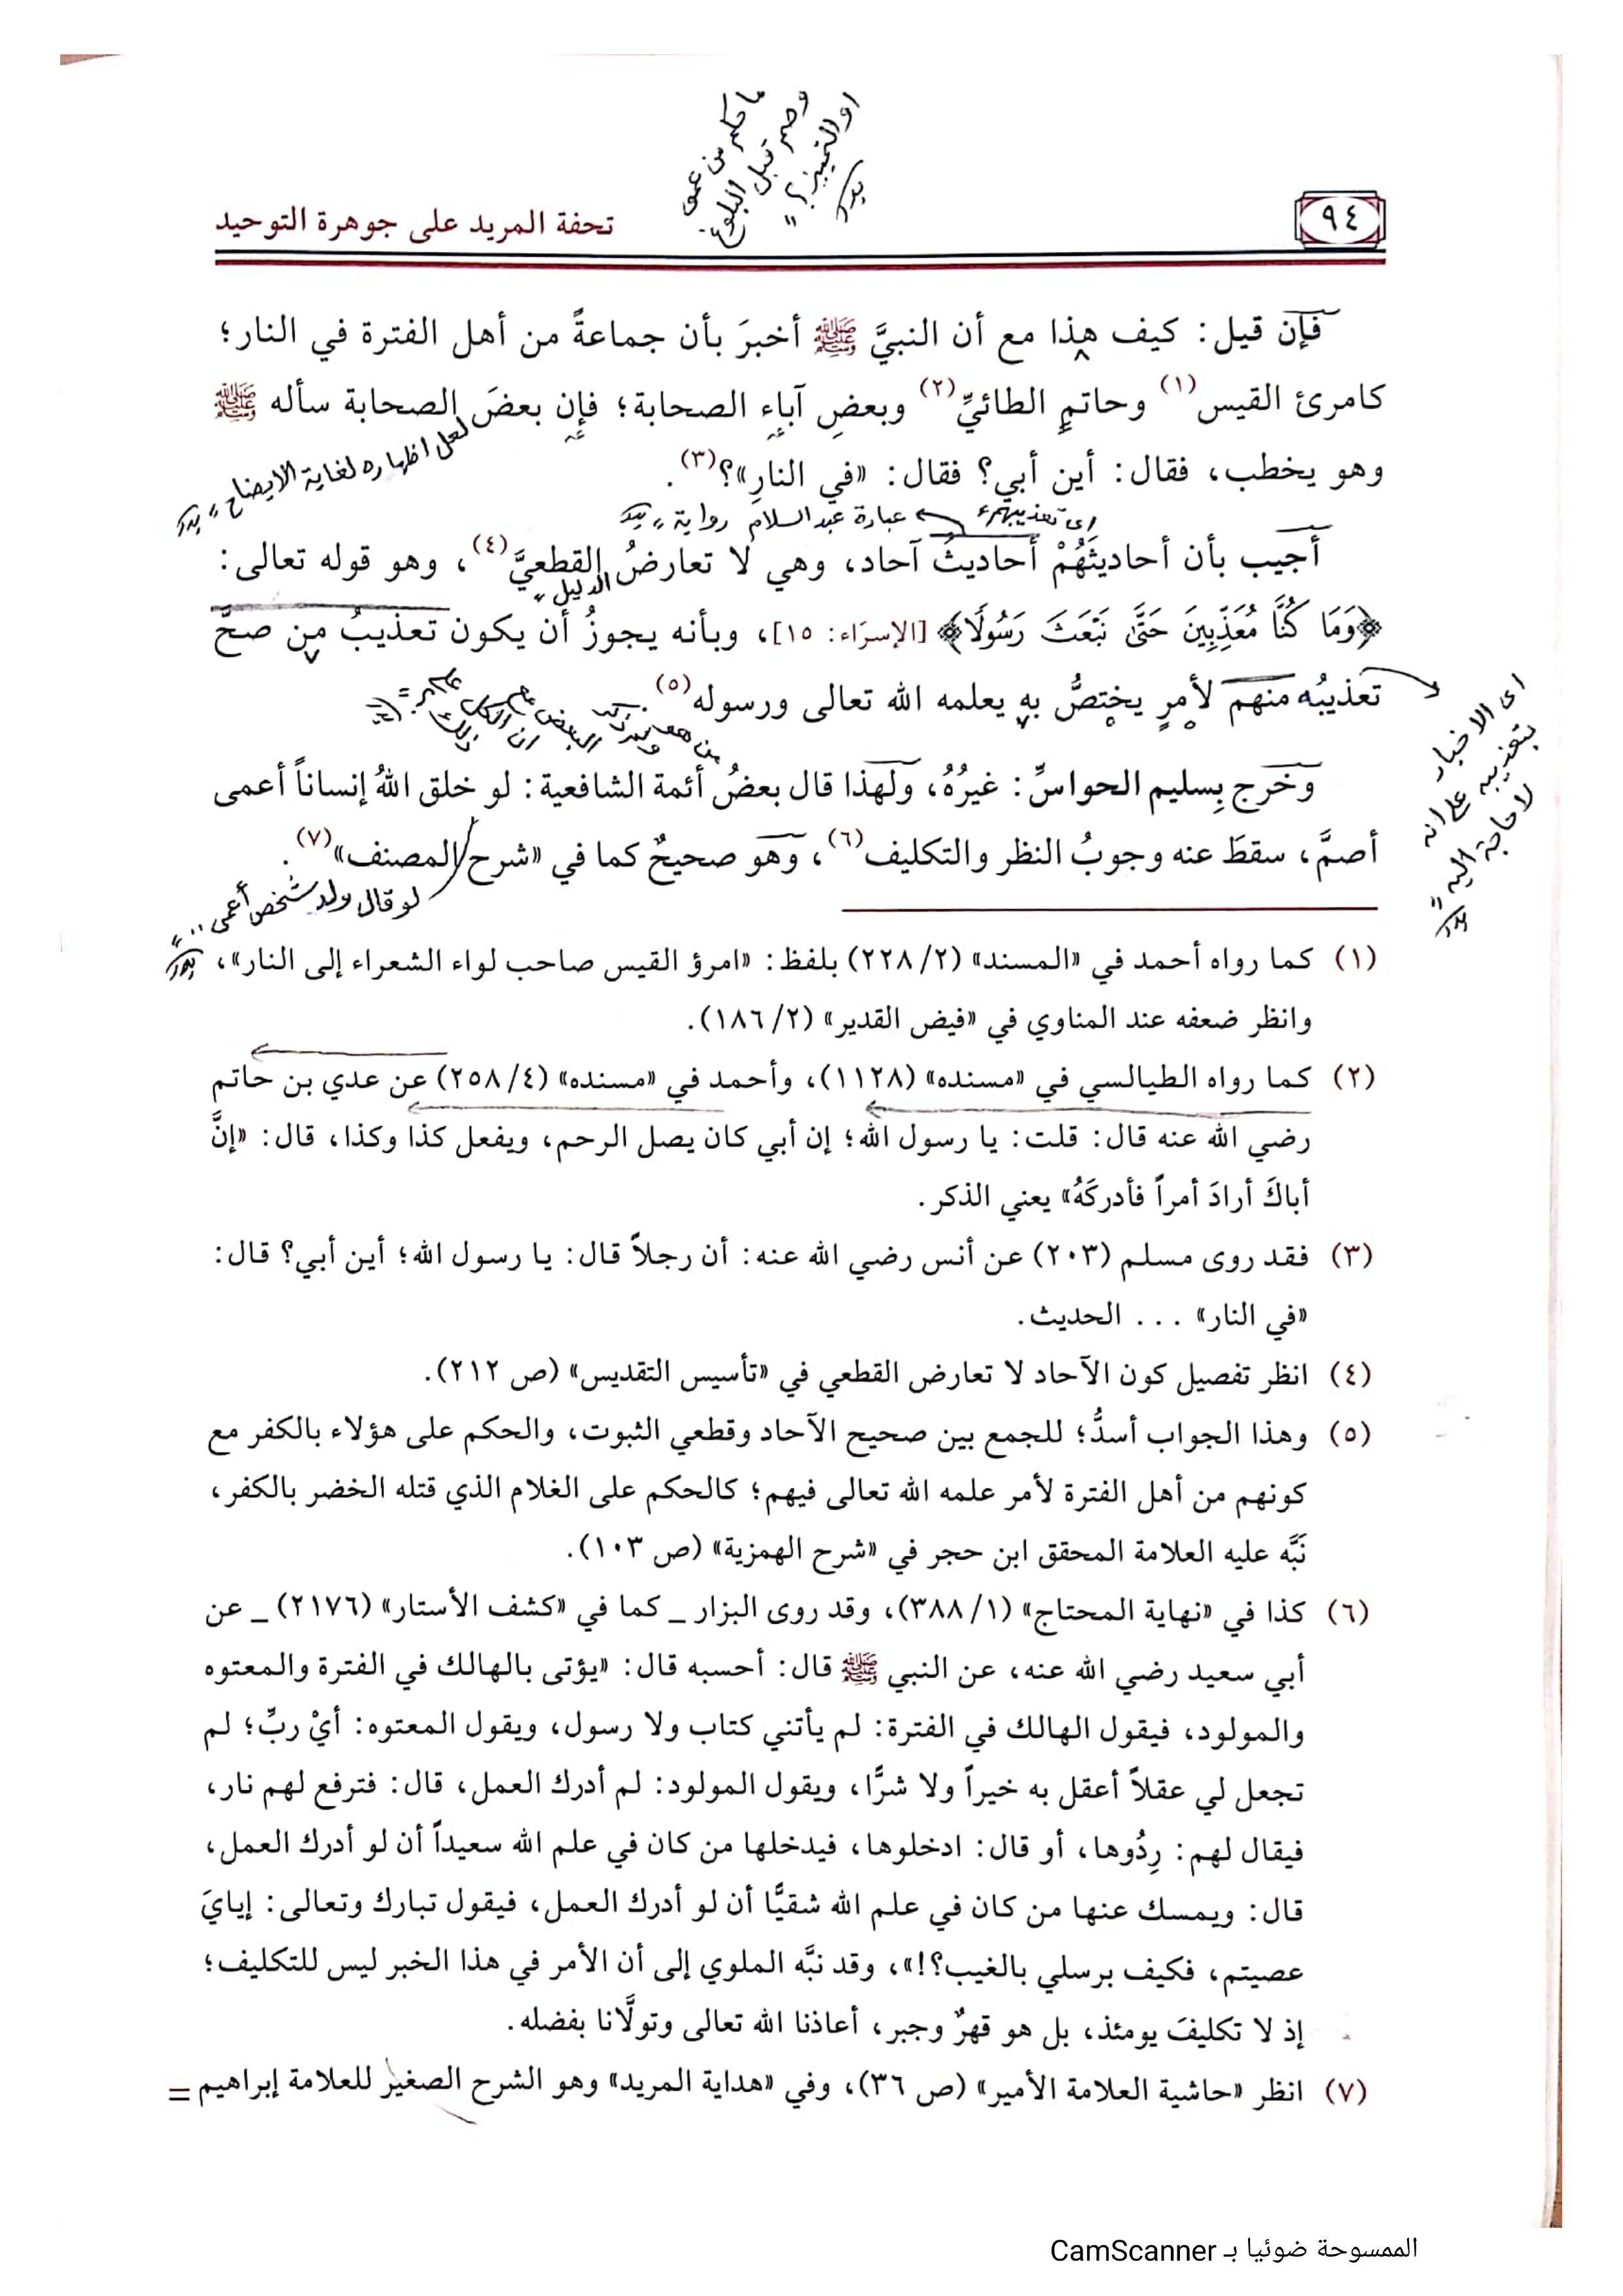 ما حكم من عمى
وصم قبل البلوغ
او التمييز؟
٩٤
تحفة المريد على جوهرة التوحيد
فإن قيل: كيف هذا مع أن النبيَّ ﷺ أخبرَ بأن جماعةً من أهل الفترة في النار؛
كامرئ القيس(١) وحاتمٍ الطائيِّ(٢) وبعضِ آباءِ الصحابة؛ فإن بعضَ الصحابة سأله ﷺ
لعل اظهاره لغاية الايضاح
وهو يخطب، فقال: أين أبي؟ فقال: «في النارِ»؟(٣).
اى تعذيبهم عبارة عبد السلام رواية
أجيب بأن أحاديثَهُمْ أحاديثُ آحاد، وهي لا تعارضُ القطعيَّ(٤)، وهو قوله تعالى:
الدليل
﴿وَمَا كُنَّا مُعَذِّبِينَ حَتَّىٰ نَبْعَثَ رَسُولًا﴾ [الإسرَاء: ١٥]، وبأنه يجوزُ أن يكون تعذيبُ من صحَّ
تعذيبُه منهم لأمرٍ يختصُّ به يعلمه الله تعالى ورسوله(٥).
اى الاخبار
بتعذيبه على انه
لا حاجة اليه
وخَرج بِسليم الحواسِّ: غيرُهُ، ولهذا قال بعضُ أئمة الشافعية: لو خلق اللهُ إنساناً أعمى
أصمَّ، سقطَ عنه وجوبُ النظر والتكليف(٦)، وهو صحيحٌ كما في «شرح المصنف»(٧).
لو قال ولد شخص أعمى
(١) كما رواه أحمد في «المسند» (٢/ ٢٢٨) بلفظ: «امرؤ القيس صاحب لواء الشعراء إلى النار»،
وانظر ضعفه عند المناوي في «فيض القدير» (٢/ ١٨٦).
(٢) كما رواه الطيالسي في «مسنده» (١١٢٨)، وأحمد في «مسنده» (٤/ ٢٥٨) عن عدي بن حاتم
رضي الله عنه قال: قلت: يا رسول الله؛ إن أبي كان يصل الرحم، ويفعل كذا وكذا، قال: «إنَّ
أباكَ أرادَ أمراً فأدركَهُ» يعني الذكر.
(٣) فقد روى مسلم (٢٠٣) عن أنس رضي الله عنه: أن رجلاً قال: يا رسول الله؛ أين أبي؟ قال:
«في النار» ... الحديث.
(٤) انظر تفصيل كون الآحاد لا تعارض القطعي في «تأسيس التقديس» (ص ٢١٢).
(٥) وهذا الجواب أسدُّ؛ للجمع بين صحيح الآحاد وقطعي الثبوت، والحكم على هؤلاء بالكفر مع
كونهم من أهل الفترة لأمر علمه الله تعالى فيهم؛ كالحكم على الغلام الذي قتله الخضر بالكفر،
نَبَّه عليه العلامة المحقق ابن حجر في «شرح الهمزية» (ص ١٠٣).
(٦) كذا في «نهاية المحتاج» (١/ ٣٨٨)، وقد روى البزار _ كما في «كشف الأستار» (٢١٧٦) _ عن
أبي سعيد رضي الله عنه، عن النبي ﷺ قال: أحسبه قال: «يؤتى بالهالك في الفترة والمعتوه
والمولود، فيقول الهالك في الفترة: لم يأتني كتاب ولا رسول، ويقول المعتوه: أيْ ربِّ؛ لم
تجعل لي عقلاً أعقل به خيراً ولا شرًّا، ويقول المولود: لم أدرك العمل، قال: فترفع لهم نار،
فيقال لهم: رِدُوها، أو قال: ادخلوها، فيدخلها من كان في علم الله سعيداً أن لو أدرك العمل،
قال: ويمسك عنها من كان في علم الله شقيًّا أن لو أدرك العمل، فيقول تبارك وتعالى: إيايَ
عصيتم، فكيف برسلي بالغيب؟!»، وقد نبَّه الملوي إلى أن الأمر في هذا الخبر ليس للتكليف؛
إذ لا تكليفَ يومئذ، بل هو قهرٌ وجبر، أعاذنا الله تعالى وتولَّانا بفضله.
(٧) انظر «حاشية العلامة الأمير» (ص ٣٦)، وفي «هداية المريد» وهو الشرح الصغير للعلامة إبراهيم =
الممسوحة ضوئيا بـ CamScanner